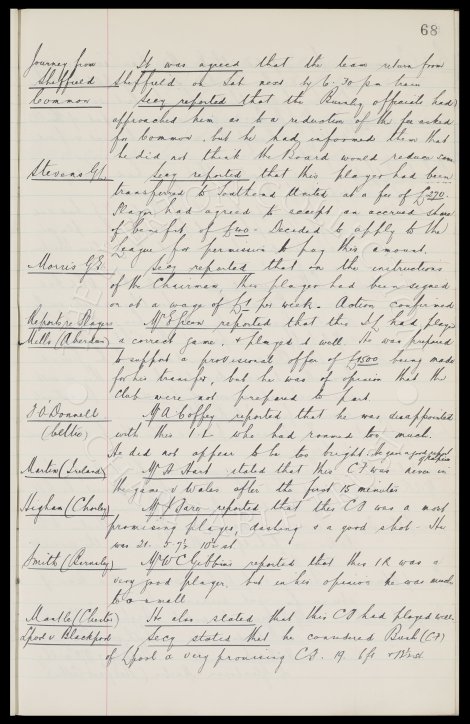 68
Journey from Sheffield It was agreed that the team return from
Sheffield on Sat next by 6.30 pm train
Common Secy reported that the Burnley officials had
approached him as to a reduction of the fee asked
for Common, but he had informed them that
he did not think the Board would reduce same
Stevens G.L. Secy reported that this player had been
transferred to Southend United at a fee of £270.
Player had agreed to accept an accrued share
of benefit of £100. Decided to apply to the
League for permission to pay this amount.
Morris G.E. Secy reported that on the instructions
of the Chairman, this player had been signed
on at a wage of £1 per week. Action confirmed
Reports re Players Mr E Green reported that this I.L had played
Mills (Aberdeen) a correct game, & played well. He was prepared
to support a provisional offer of £1500 being made
for his transfer, but he was of opinion that the
Club were not prepared to part.
O'Donnell Mr A Coffey reported that he was disappointed
(Celtic) with this I.L who had roamed too much.
He did not appear to be too bright.
Martin (Ireland) Mr A Hart stated that this CF was never in
the game v Wales after the first 15 minutes
Higham (Chorley) Mr J Fare reported that this CF was a most
promising player, dashing & a good shot. He
was 21. 5'9½ 10½st
Smith (Burnley) Mr W C Gibbins reported that this IR was a
very good player, but in his opinion he was much
too small.
Mantle (Chester) He also stated that this CF had played well.
Lpool v Blackpool Secy stated that he considered Bush (CH)
of Lpool a very promising CH. 19. 6ft